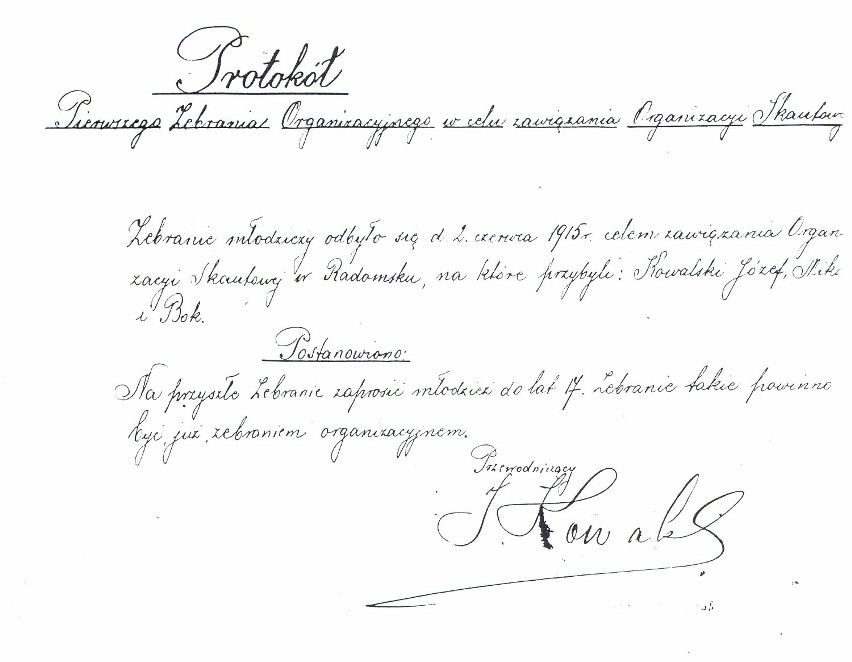 Protokół
Pierwszego Zebrania Organizacyjnego w celu zawiązania Organizacyi Skautow
Zebranie młodzieży odbyło się d. 2. czerwca 1915r. celem zawiązania Organ-
zacyi Skautowej w Radomsku, na które przybyli: Kowalski Józef, Nik
i Bok.
Postanowiono:
Na przyszłe Zebranie zaprosić młodzież do lat 17. Zebranie takie powinno
być już zebraniem organizacyjnem.
Przewodniczący
J. Kowalski